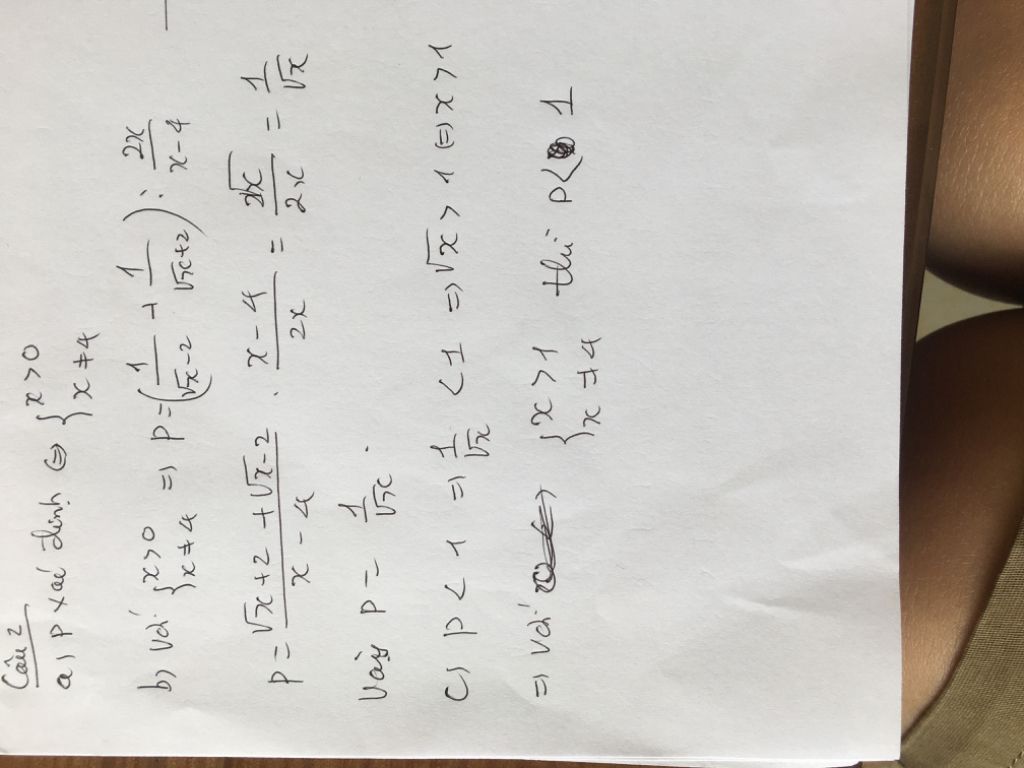 Câu 2
a, P xác định ⇔ { x > 0 x ≠ 4
b, Với { x > 0 x ≠ 4 ⇒ P = ( 1/(√x-2) + 1/(√x+2) ) : 2x/(x-4)
P = (√x+2 + √x-2)/(x-4) . (x-4)/2x = 2√x/2x = 1/√x
Vậy P = 1/√x .
c, P < 1 ⇒ 1/√x < 1 ⇒ √x > 1 ⇔ x > 1
⇒ Với { x > 1 x ≠ 4 thì P < 1